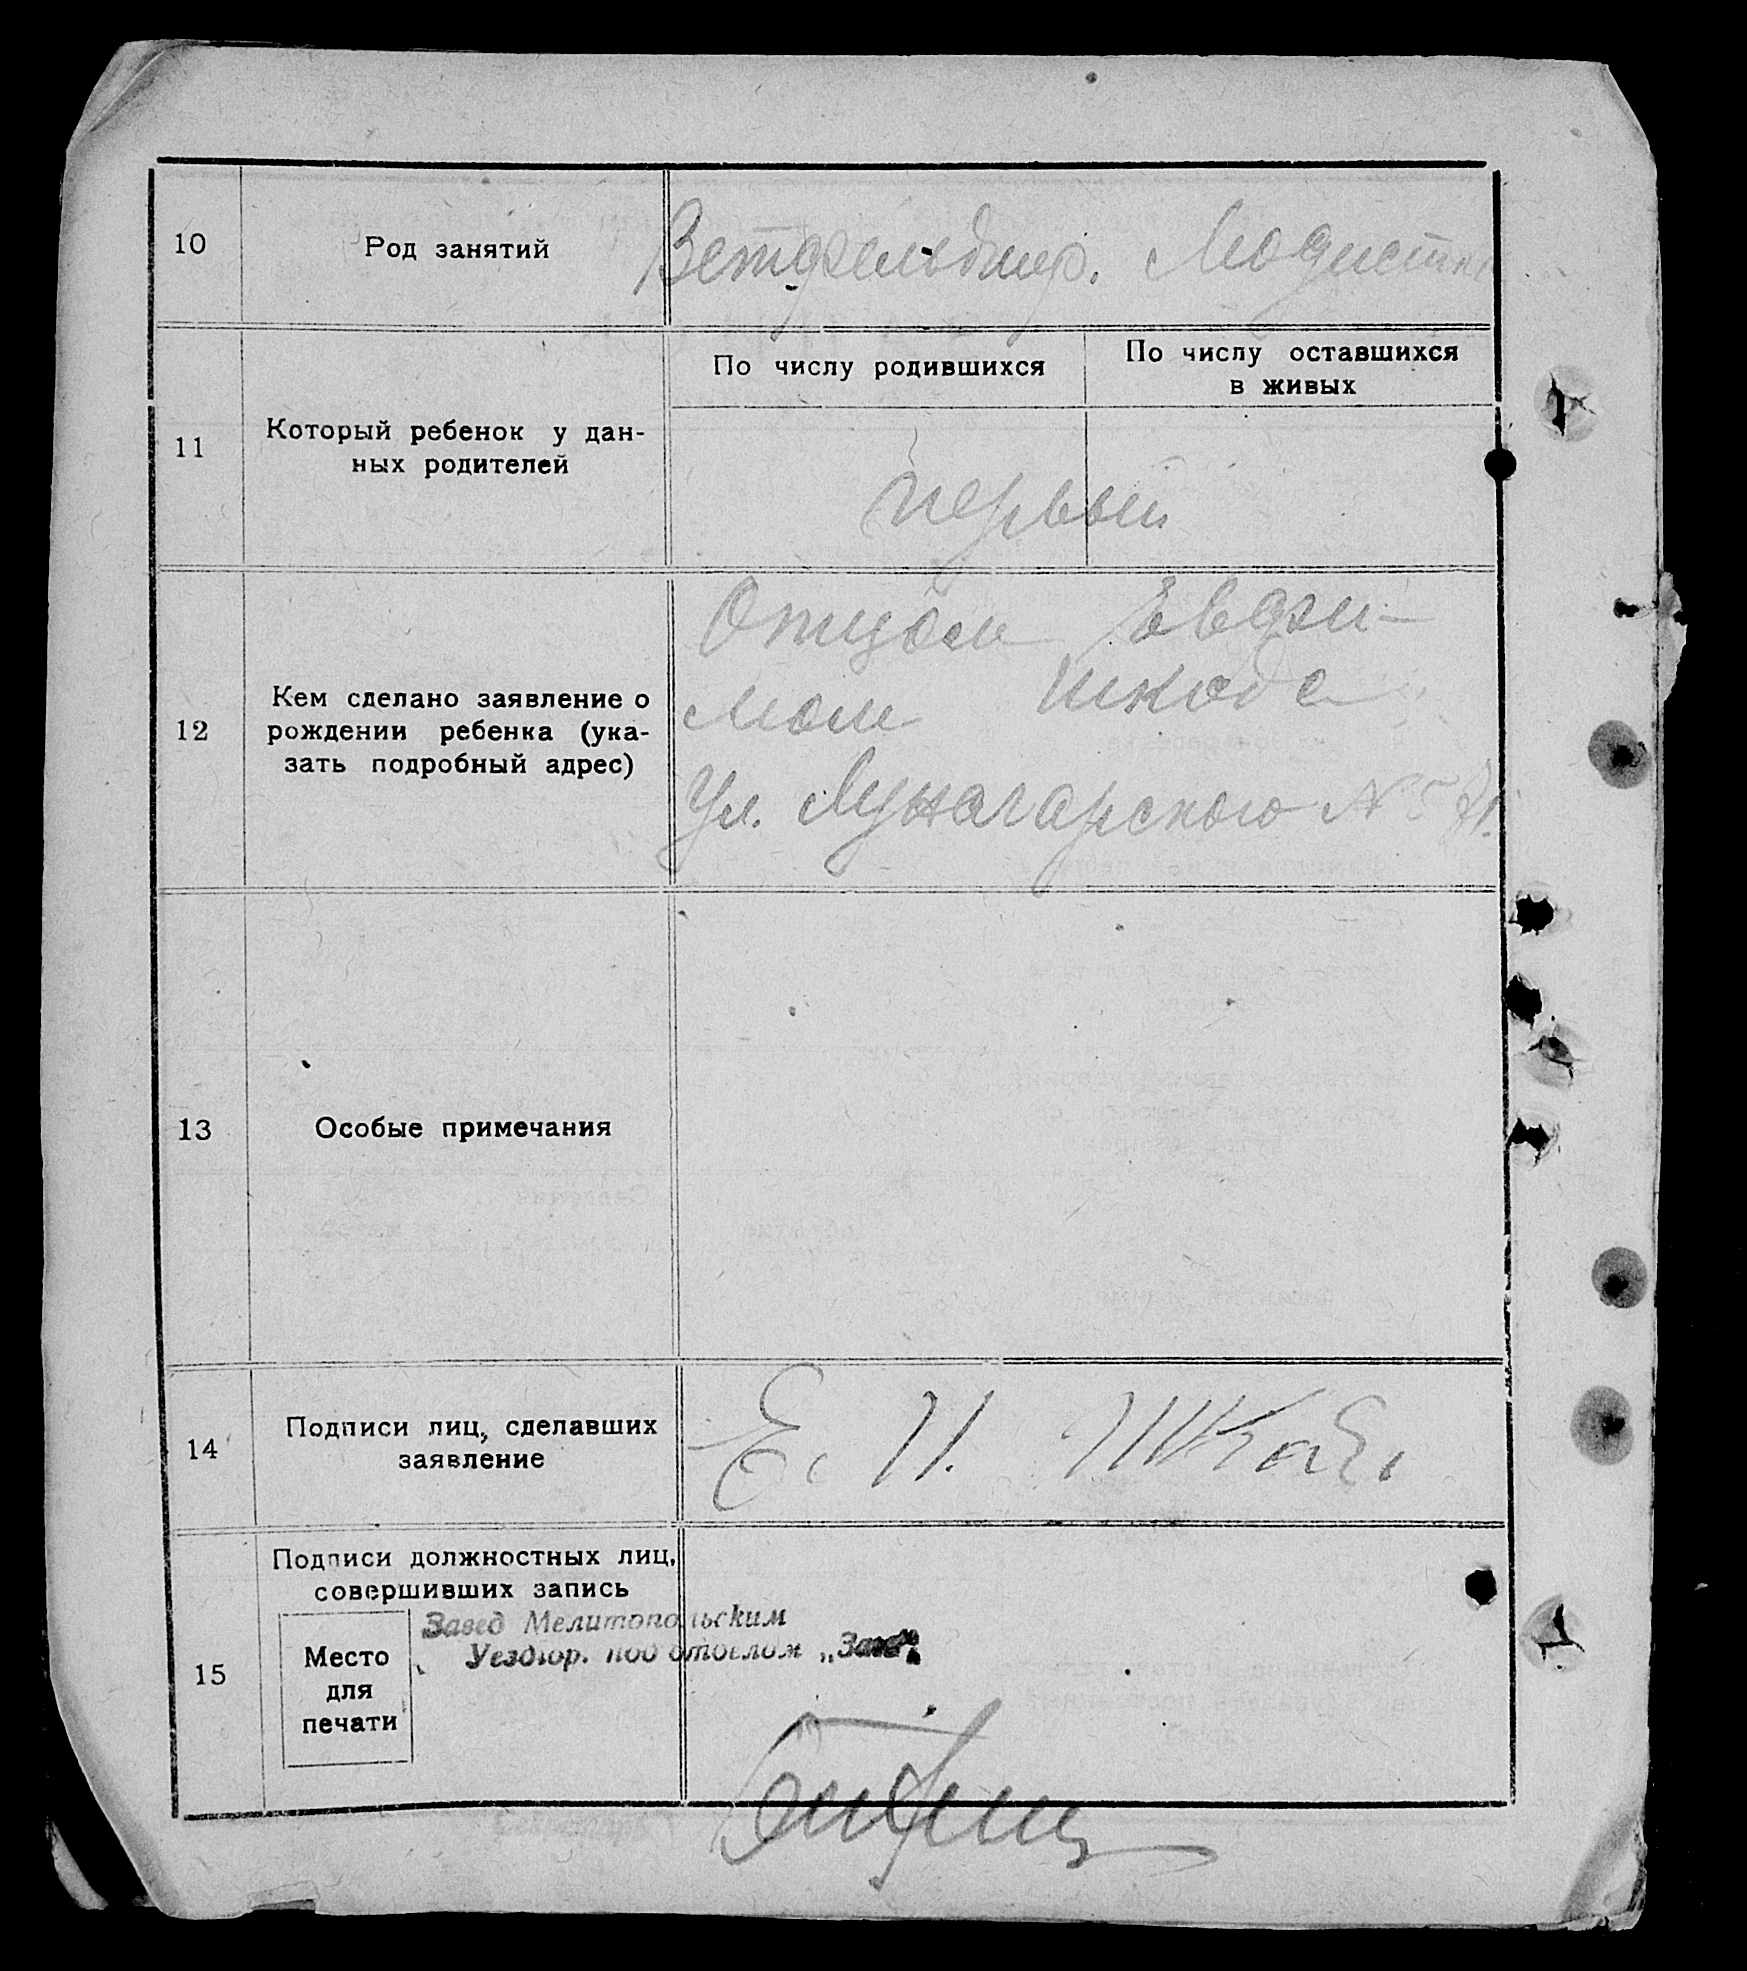 10
Род занятий
Ветфельдшер. Модистка
По числу родившихся
По числу оставшихся
в живых
11
Который ребенок у дан-
ных родителей
первый
12
Кем сделано заявление о
рождении ребенка (ука-
зать подробный адрес)
Отцом Евфи-
мом Шкода
Ул. Луначарского №
13
Особые примечания
14
Подписи лиц, сделавших
заявление
Е. И. Шкода
15
Подписи должностных лиц,
совершивших запись
Место
для
печати
Завед Мелитопольским
Уездгор. подотделом „Загс“